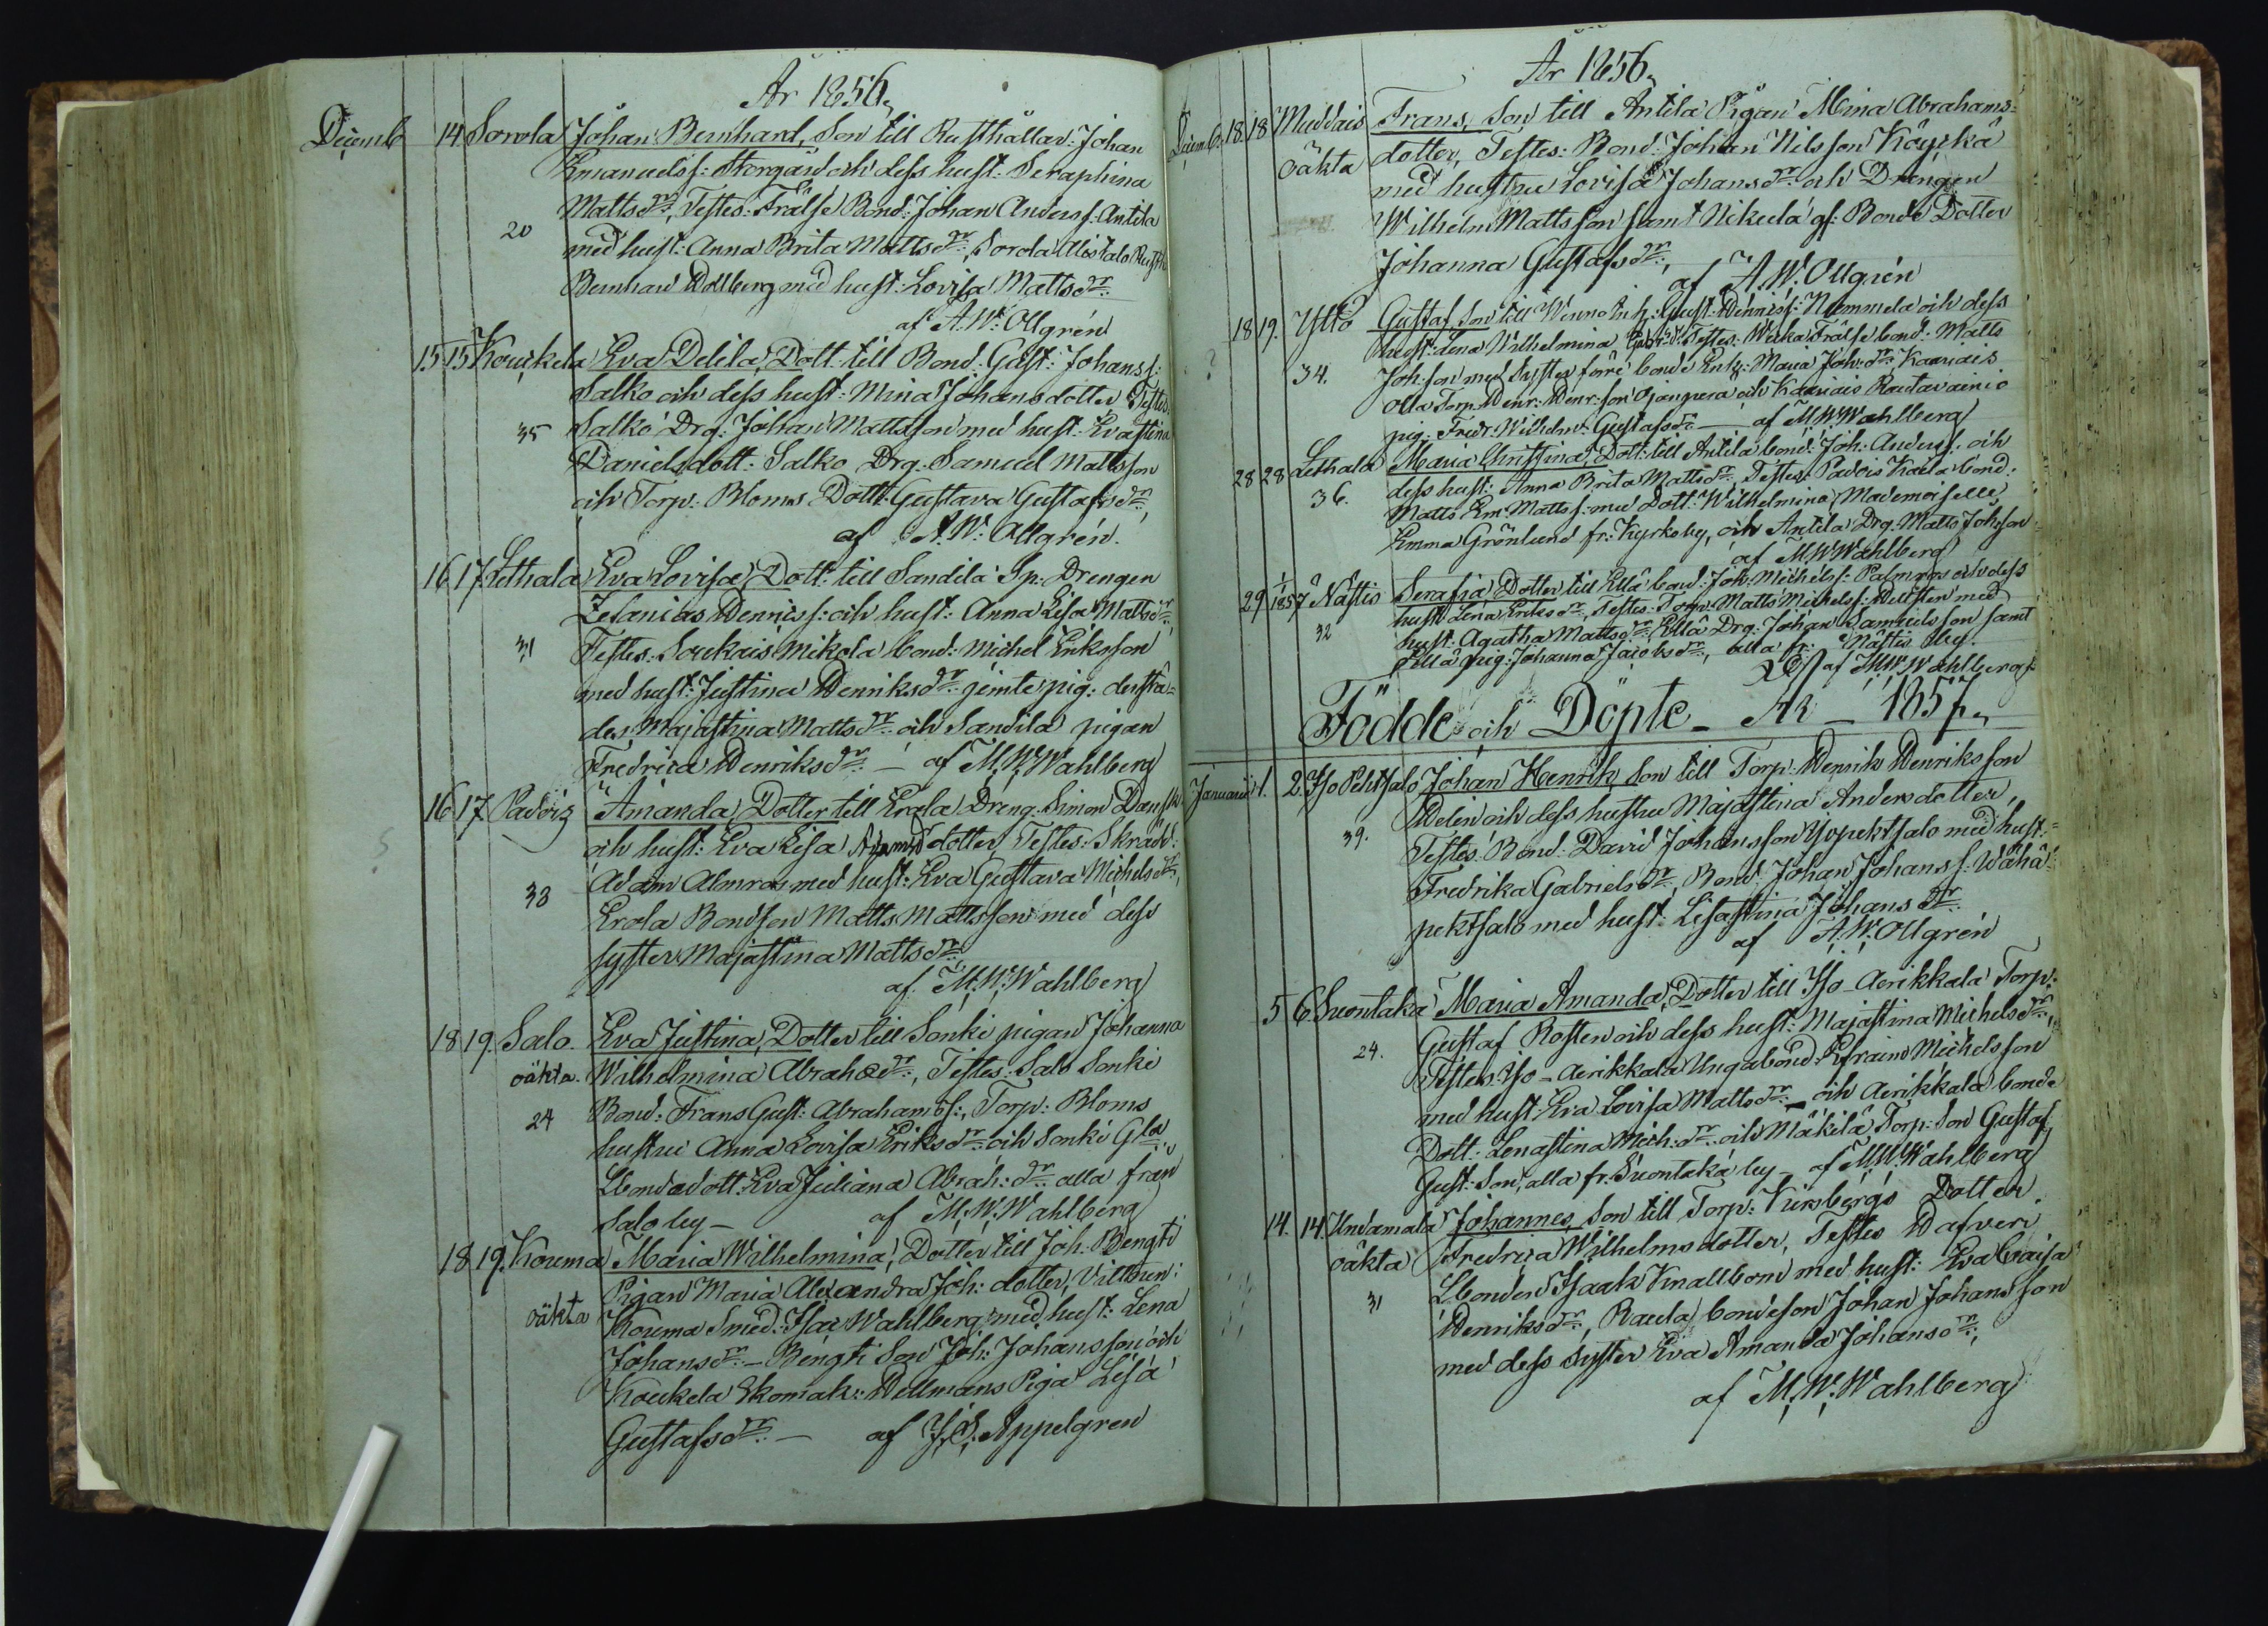 År 1856,
Decemb 14 Sorola Johan Bernhard, Son till Rusthållar: Johan
Emanuelss: Storgård och dess hust: Seraphina
Mattsdr:, Testes: Frälse Bond: Johan Anderss: Antila
20 med hust: Anna Brita Mattsdr:, Sorola Alistalo Rusth
Bernhard Hollberg med hust: Lovisa Mattsdr:
af A: W: Ollgrén
15 15 Koukela Eva Delila, Dott: till Bond: Gust: Johanss:
Salko och dess hust: Mina Johansdotter Testes
35 Salko Drg: Johan Mattsson med hust: Evastina
Danielsdott: Salko Drg: Samuel Mattsson
och Torp: Bloms Dott: Gustava Gustafsdr:,
af A: W: Ollgrén.
16 17 Lethala Eva Lovisa, Dott: till Sandila Sp: Drengen
Zefanias Henriss: och hust: Anna Lisa Mattsdr:
31 Testes: Soukais Mikola bond: Michel Eriksson
med hust: Justina Henriksdr: jemte pig: derstä=
des Majastina Mattsdr: och Sandila pigan
Fredrica Henriksdr: — af M. W. Wahlberg
16 17 Padois Amanda, Dotter till Erola Dreng: Simon
och hust: Eva Lisa Adamsdotter, Testes: Skrädd:
33 Adam Almros med hust: Eva Gustava Michelsdr:,
Erola Bondson Matts Mattsson med dess
syster Majastina Mattsdr:,
af M. W. Wahlberg
18 19. Salo. Eva Justina, Dotter till Sonki pigan Johanna
oäkta. Wilhelmina Abrahsdr:, Testes: Salo Sonki
24 Bond: Frans Gust: Abrahamss:, Torp: Bloms
hustru Anna Lovisa Eriksdr: och Sonki Gla
Bondadott: Eva Juliana Abrah: dr: alla från
Salo by — af M. W. Wahlberg
18 19. Kouma Maria Wilhelmina, Dotter till Joh: Bengti
Pigan Maria Alexandra Joh: dotter, Vittnen:
oäkta Kouma Smed: Isac Wahlberg med hust: Lena
Johansdr: — Bengti Son Joh: Johansson och
Koukela Skomak: Hellmans Piga Lisa
Gustafsdr: — af J. S. Appelgren
År 1856,
Decemb: 18 18 Muddais Frans, Son till Antila Pigan Mina Abrahams=
oäkta dotter, Testes: Bond: Johan Nilsson Käyrkä
med hustru Lovisa Johansdr: och Drengen
Wilhelm Mattsson samt Nikula gf: Bonde Dotter
Johanna Gustafsdr:,
af A. W. Ollgrén
18 19. Yltö Gustaf, Son till Gust: Henriss: Nummela och dess
hust: Lena Wilhelmina Testes: Frälse bond: Matts
34. Joh: son med Syster förre bonde Enk: Maria Joh: dr: Kaariais
Olla Torp: Henr: Henr: son Ojanpera och Kaariais Rautavainio
pig: Fredr: Wilhelm: Gustafsdr — af M W Wahlberg
28 28 Lethala Maria Christina, Dott: till Antila bond: Joh: Anderss: och
36. dess hust: Anna Brita Mattsdr:, Testes: Padois Kaela bond:
Matts Em: Mattss: med Dott: Wilhelmina, Mademoiselle
Emma Grönlund fr: Kyrkoby, och Antila Drg: Matts Johsson
af M W Wahlberg
29 1/1857 Nästis Serafia Dotter till Ellä bond: Joh: Michelss: Palmros och dess
32 hust: Lena Eriksdr:, Testes: Torp: Matts Michelss: Hellsten med
hust: Agatha Mattsdr:, Ellä Drg: Johan Samuelsson samt
Ellä pig: Johanna Jacobsdr:, alla fr: Nästis by.
af M. W. Wahlberg
Födde och Döpte — År — 1857,
Januarii 1. 2. Iso Pehtsalo Johan Henrik, Son till Torp: Henrik Henriksson
Helin och dess hustru Majastina Andersdotter,
39. Testes: Bond: David Johansson Ysopehtsalo med hust:=
Fredrika Gabrielsdr:, Bond: Johan Johanss: Wähä=
pektsalo med hust: Lisastina Johansdr:
af A. W. Ollgrén
5 6 Suontaka Maria Amanda, Dotter till Iso-Aerikkala Torp:
Gustaf Rosten och dess hust: Majastina Michelsdr:,
24. Testes: Iso-Aerikkala Unga bond: Efraim Michelsson
med hust: Eva Lovisa Mattsdr: — och Aerikkala bonde
Dott: Lenastina Mich: dr: och Mäkilä Torp: Son Gustaf
Gust: Son, alla fr: Suontaka by — af M W Wahlberg
14. 14 Undamala Johannes, Son till Torp: Virsbergs Dotter
oäkta Fredrica Wilhelmsdotter, Testes Hafveri
Lbonden Isaak Knallbom med hust: Eva Caisa
31 Henriksdr:, Raula bondeson Johan Johansson
med dess Syster Eva Amanda Johansdr:,
af M. W. Wahlberg